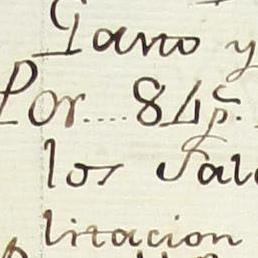 Gano y
Por.... 84 p.
los Sala
litacion